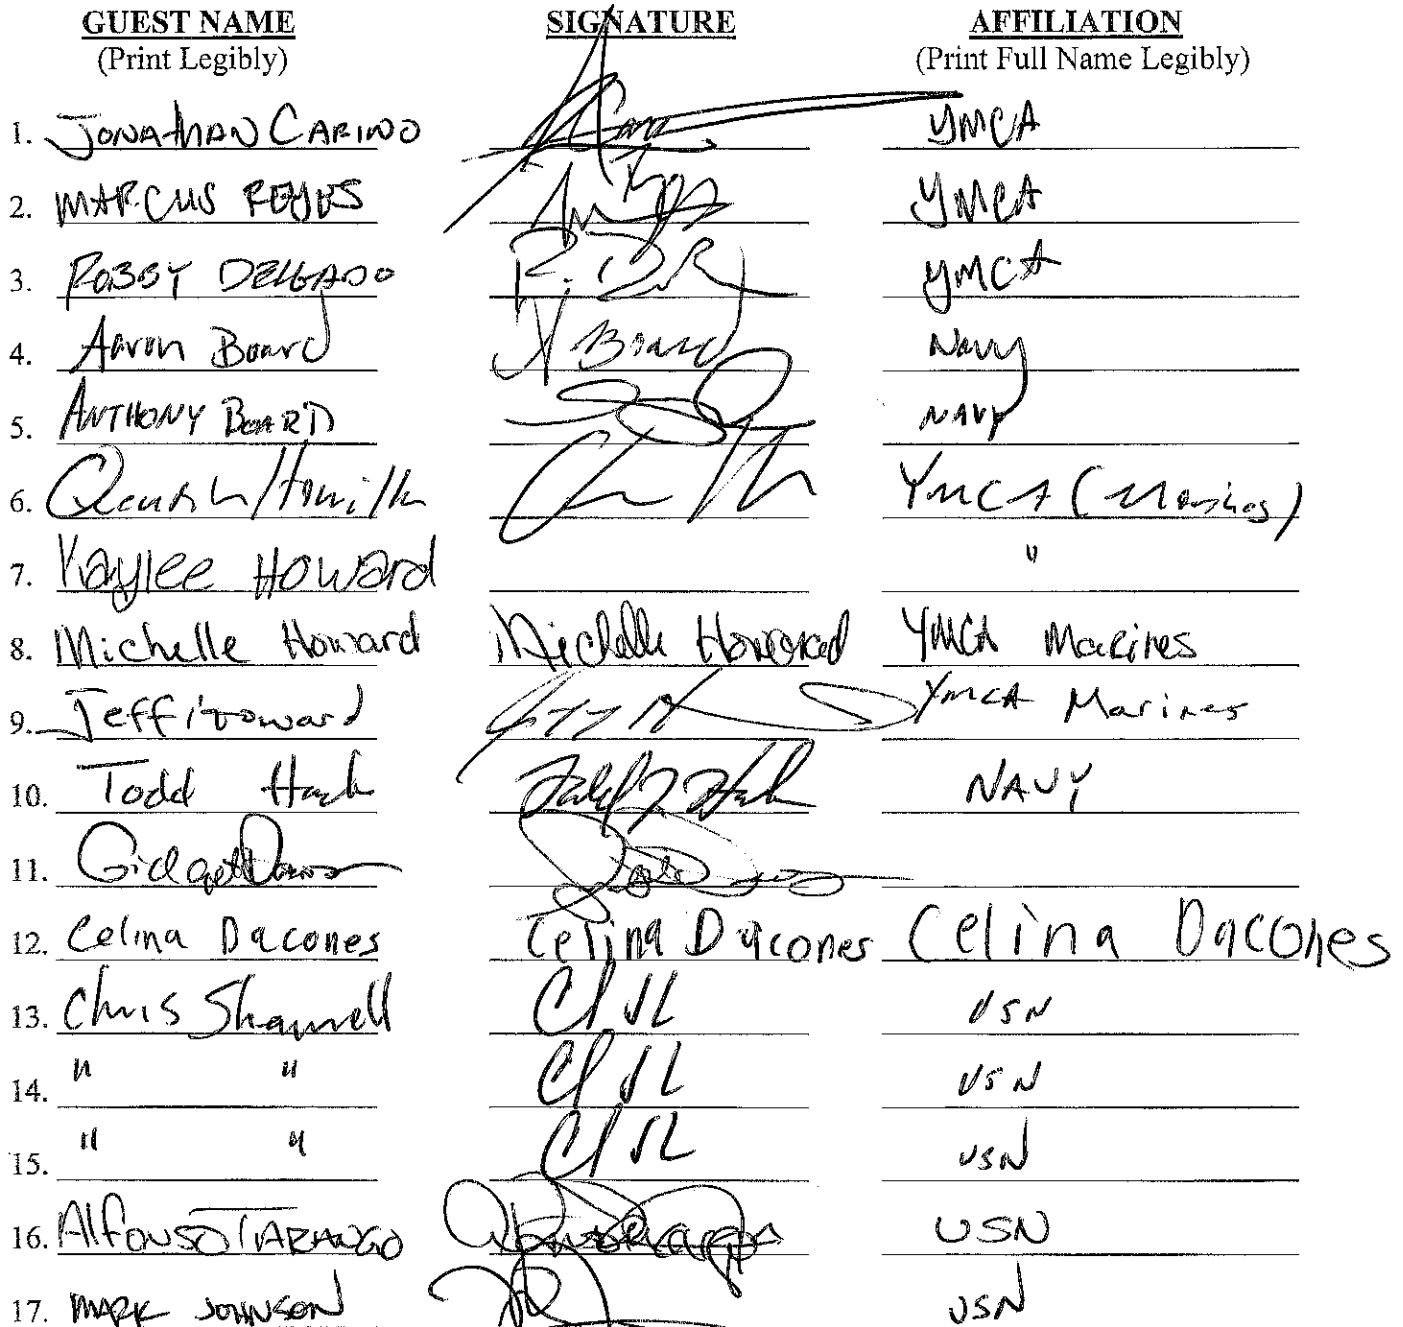 GUEST NAME SIGNATURE AFFILIATION
(Print Legibly) (Print Full Name Legibly)
1. JONATHAN CARINO YMCA
2. MARCUS REYES YMCA
3. ROBBY DELGADO YMCA
4. Aaron Board A Board Navy
5. ANTHONY BOARD NAVY
6. YMCA (Marines)
7. Kaylee Howard "
8. Michelle Howard Michelle Howard YMCA Marines
9. Jeff Howard YMCA Marines
10. Todd NAVY
11. Gidget
12. Celina Dacones Celina Dacones Celina Dacones
13. Chris USN
14. " " USN
15. " " USN
16. Alfonso TARANGO USN
17. MARK JOHNSON USN